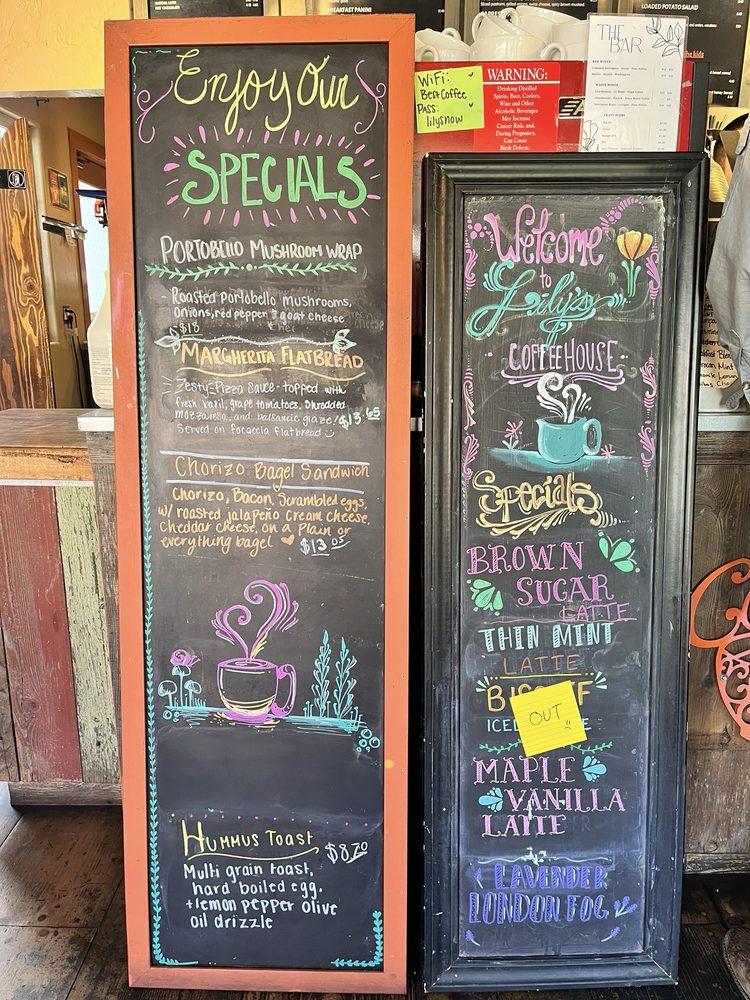 Enjoy Our
SPECIALS
PORTOBELLO MUSHROOM WRAP
Roasted portobello mushrooms,
Onions, red pepper & goat cheese
- $13
MARGHERITA FLATBREAD
Zesty Pizza Sauce topped with
fresh basil, grape tomatoes, Shredded
mozzarella, and balsamic glaze/ $13.65
Served on focaccia flatbread
Chorizo Bagel Sandwich
Chorizo, Bacon, Scrambled eggs,
w/ roasted jalapeño cream cheese,
cheddar cheese, on a Plain or
everything bagel $13.05
HUMMUS TOAST $8.70
Multi grain toast,
hard boiled egg,
+ lemon pepper olive
oil drizzle
WiFi:
Ben Coffee
Pass:
lilysnow
WARNING:
Drinking Distilled
Spirits, Beer, Coolers,
Wine and Other
Alcoholic Beverages
May Increase
Cancer Risk, and,
During Pregnancy,
Can Cause
Birth Defects.
THE
BAR
RED WINES
WHITE WINES
CRAFT BEERS
LOADED POTATO SALAD
BREAKFAST PANINI
the kids
Welcome
to
Lily's
COFFEEHOUSE
Specials
BROWN
SUGAR
LATTE
THIN MINT
LATTE
OUT
ICED
MAPLE
VANILLA
LATTE
LAVENDER
LONDON FOG